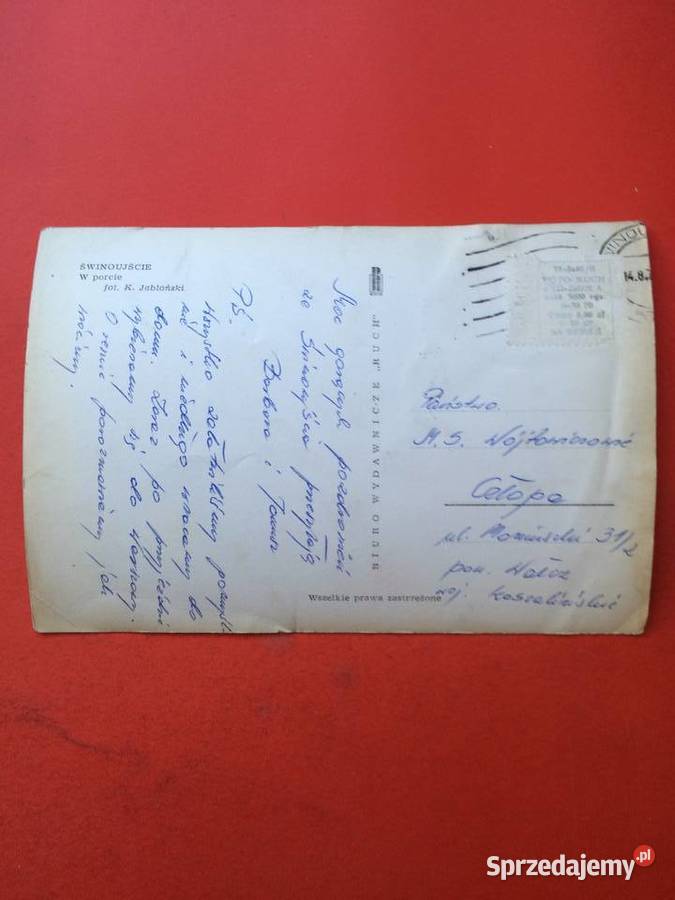 ŚWINOUJŚCIE
W porcie
fot. K. Jabłoński
Moc gorących pozdrowień
ze Świnoujścia przesyłają
Barbara i Janusz
PS.
Wszystko załatwiliśmy pomyśl-
nie i niedługo wracamy do
domu. Zaraz po przyjeździe
wybieramy się do
O remie porozmawiamy jak
wrócimy.
BIURO WYDAWNICZE „RUCH"
Wszelkie prawa zastrzeżone
14.8.
Państwo
M. S. Wójtowiczowie
Człopa
ul. 31/2
pow. Wałcz
woj. Koszalińskie
Sprzedajemy.pl